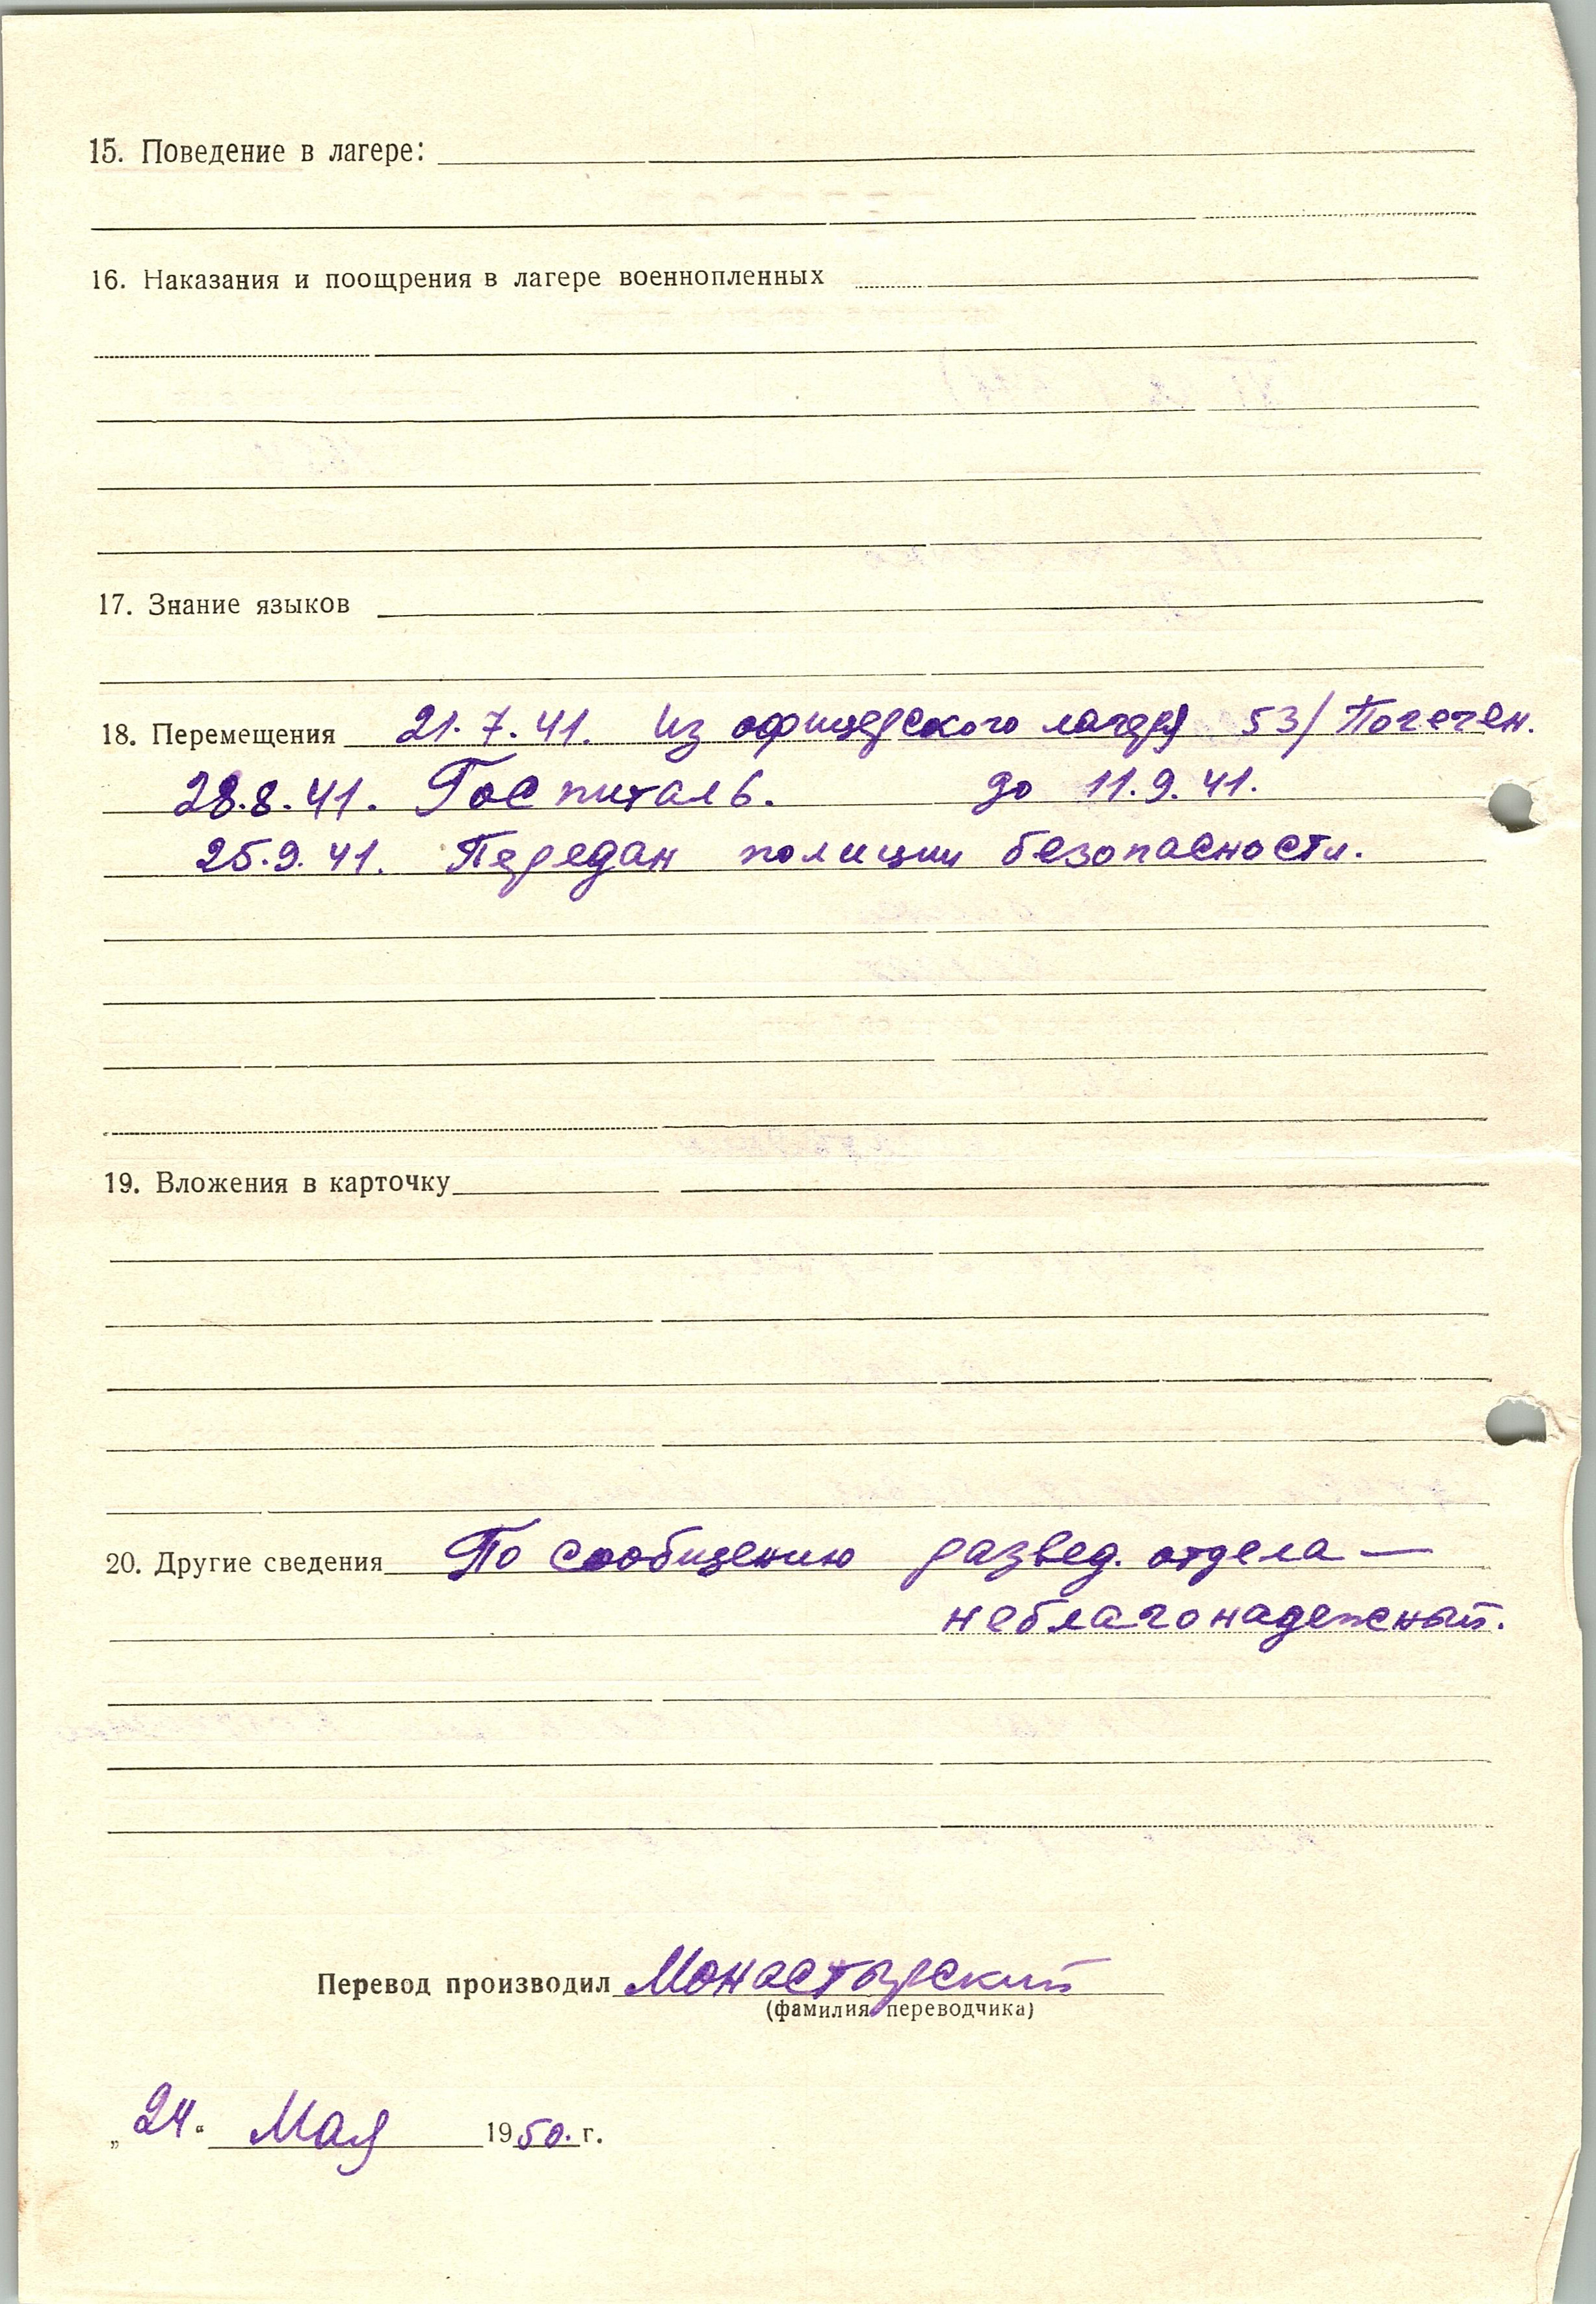 15. Поведение в лагере:
16. Наказания и поощрения в лагере военнопленных
17. Знание языков
18. Перемещения 21.7.41. Из офицерского лагеря 53/ Погеген.
28.8.41. Госпиталь. до 11.9.41.
25.9.41. Передан полиции безопасности.
19. Вложения в карточку
20. Другие сведения По сообщению развед. отдела —
неблагонадежный.
Перевод производил Монастырский
(фамилия переводчика)
„24“ Мая 1950. г.